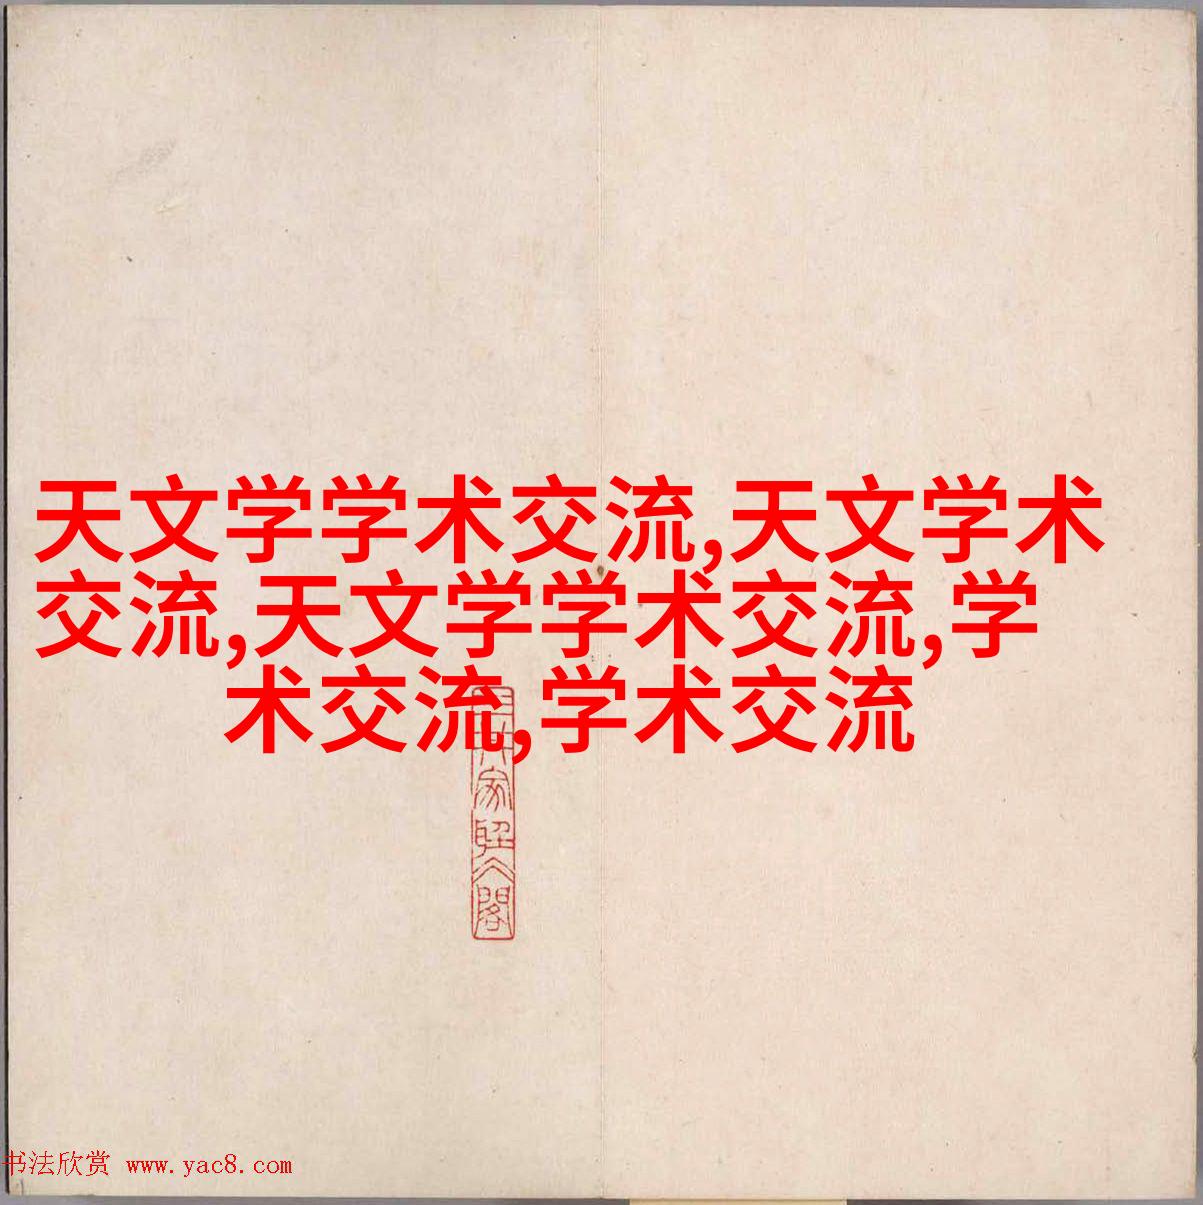 天文学学术交流,天文学术
交流,天文学学术交流,学
术交流,学术交流
书法欣赏 www.yac8.com